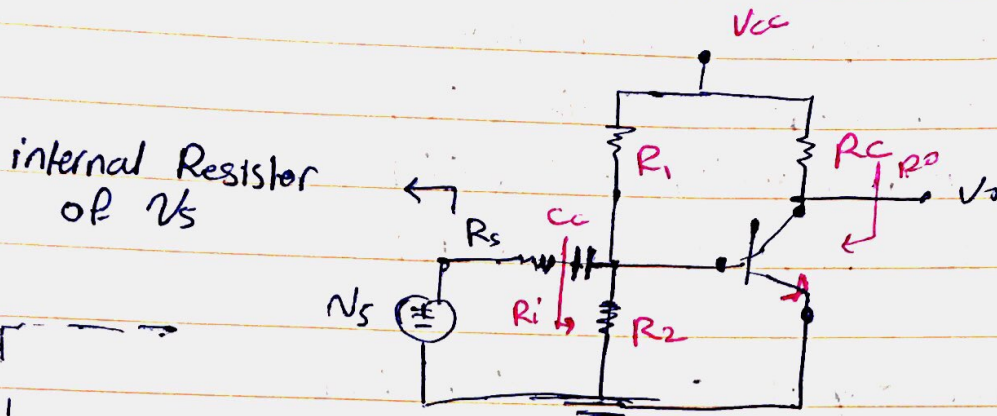 Vcc
internal Resistor
of Vs
R1
Rc
Ro
Vo
Rs
Cc
Vs
Ri
R2